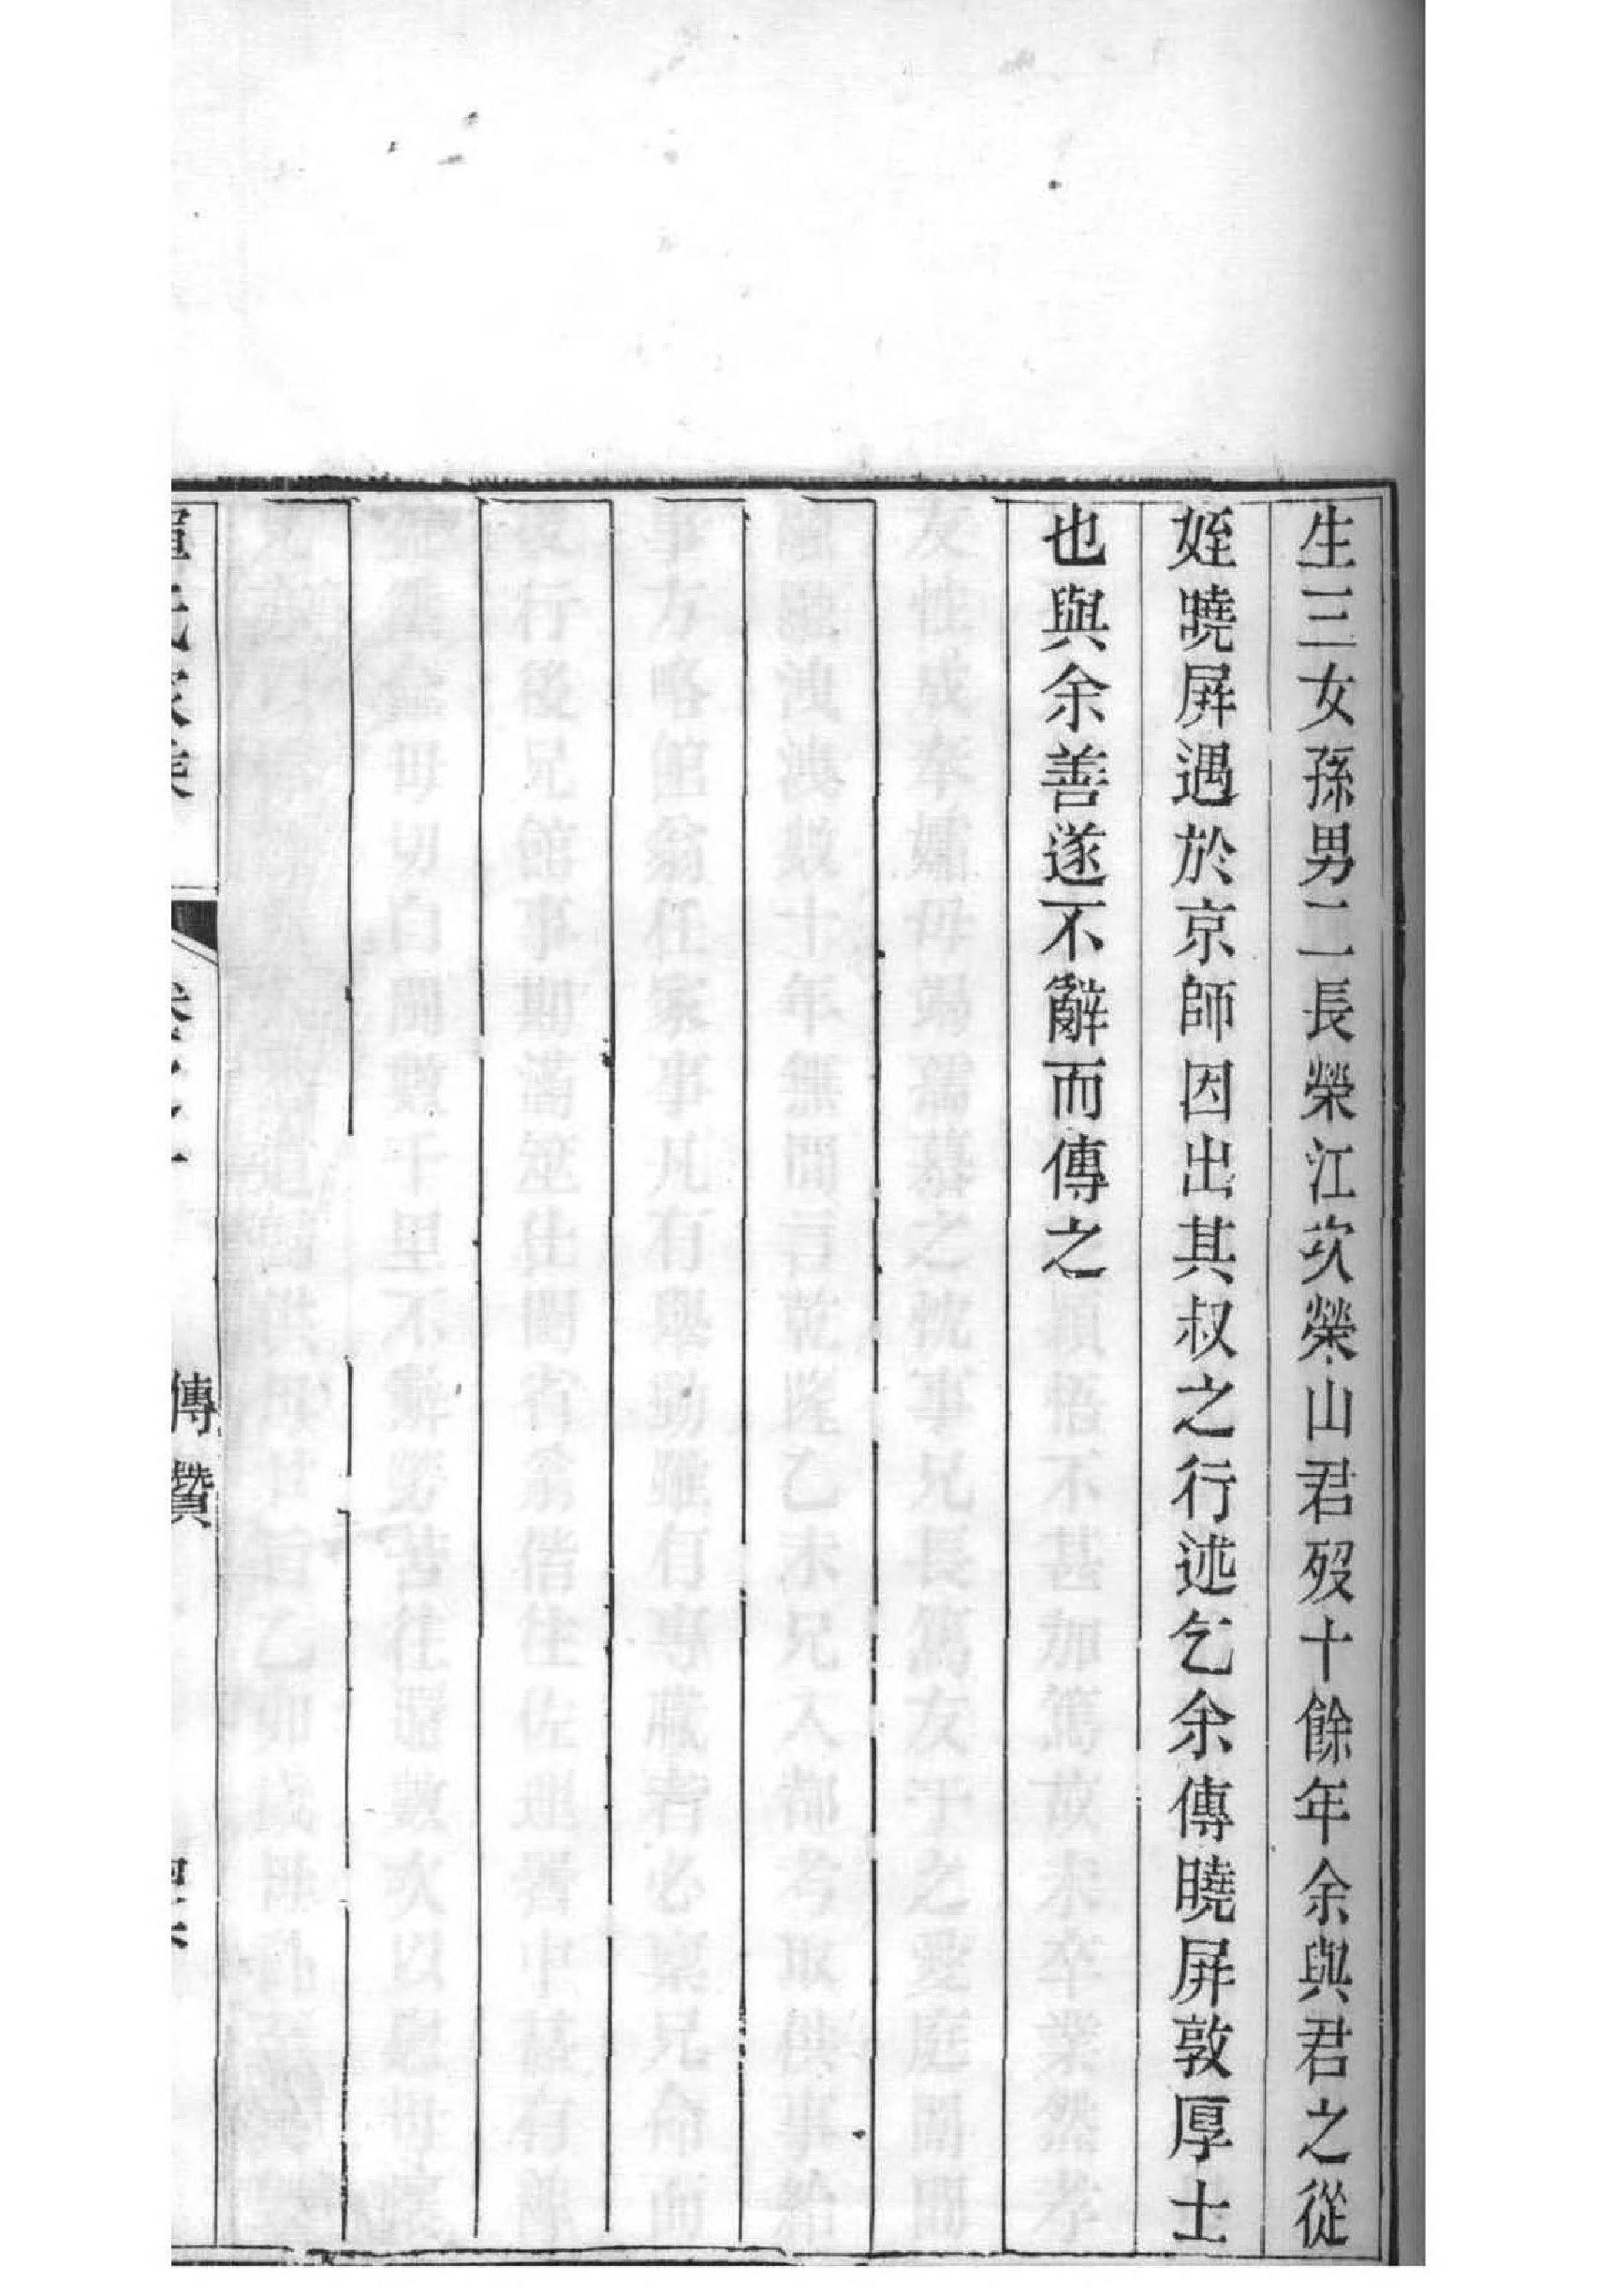 生三女孫男二長榮江次榮山君歿十餘年余與君之從
姪曉屏遇於京師因出其叔之行述乞余傳曉屏敦厚士
也與余善遂不辭而傳之
傳贊